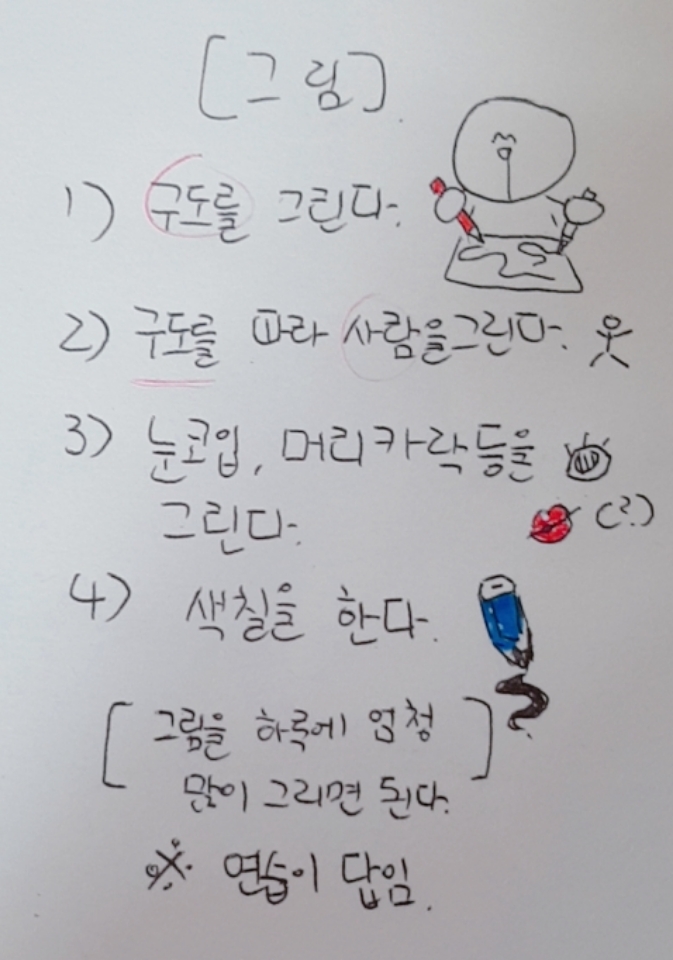 [그림].
1) 구도를 그린다.
2) 구도를 따라 사람을그린다.
3) 눈코입, 머리카락등을
그린다.
(?)
4) 색칠을 한다.
[그림을 하루에 엄청
많이 그리면 된다.]
※ 연습이 답임.